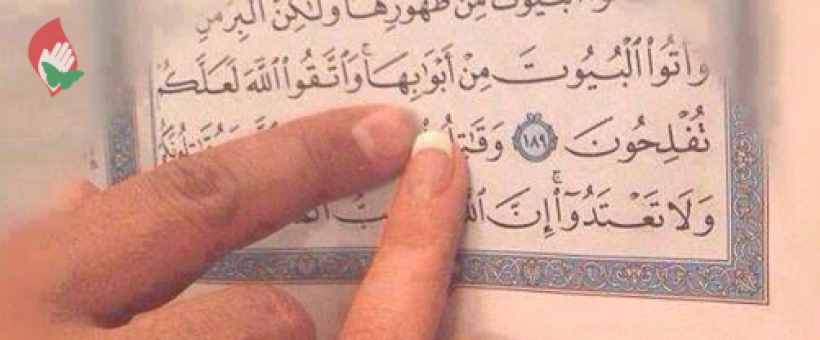 ٱلْبُيُوتَ مِن ظُهُورِهَا وَلَٰكِنَّ ٱلْبِرَّ مَنِ
وَأْتُوا۟ ٱلْبُيُوتَ مِنْ أَبْوَٰبِهَا ۚ وَٱتَّقُوا۟ ٱللَّهَ لَعَلَّكُمْ
تُفْلِحُونَ ١٨٩
وَلَا تَعْتَدُوٓا۟ ۚ إِنَّ